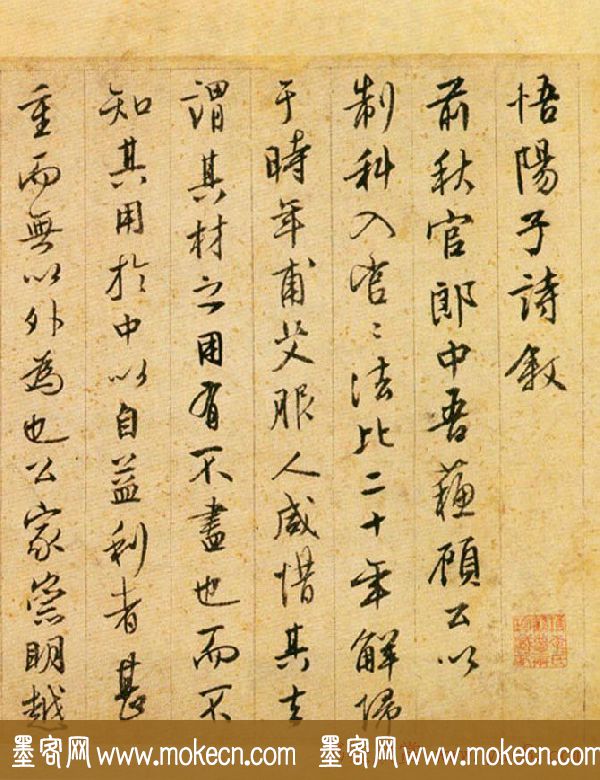 悟陽子詩敘
前秋官郎中吾蘇顧公以
制科入官〻法比二十年解歸
于時年甫艾服人咸惜其去
謂其材之用有不盡也而不
知其用於中以自益利者甚
重而無以外為也公家崇明越
墨客网 www.mokecn.com 墨客网 www.mokecn.com